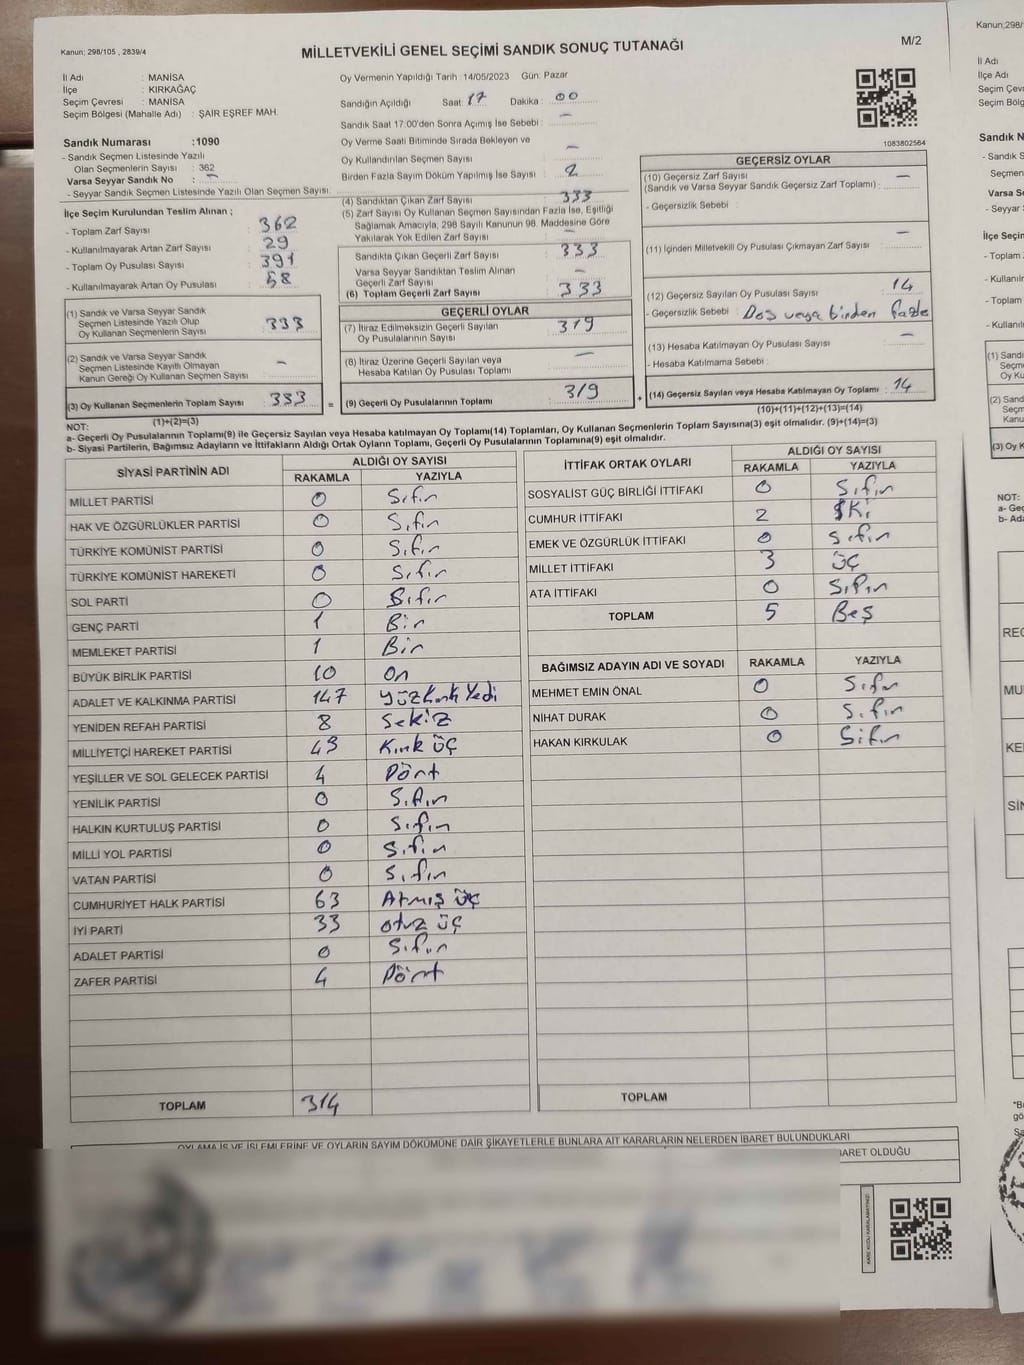 Kanun; 298/105 , 2839/4
MİLLETVEKİLİ GENEL SEÇİMİ SANDIK SONUÇ TUTANAĞI
M/2
İl Adı : MANİSA
İlçe : KIRKAĞAÇ
Seçim Çevresi : MANİSA
Seçim Bölgesi (Mahalle Adı) : ŞAİR EŞREF MAH.
Oy Vermenin Yapıldığı Tarih :14/05/2023 Gün: Pazar
Sandığın Açıldığı Saat: 17 Dakika : 00
Sandık Saat 17:00'den Sonra Açımış İse Sebebi : —
Oy Verme Saati Bitiminde Sırada Bekleyen ve
Oy Kullandırılan Seçmen Sayısı : —
Birden Fazla Sayım Döküm Yapılmış İse Sayısı : 2
1083802564
Sandık Numarası :1090
- Sandık Seçmen Listesinde Yazılı
Olan Seçmenlerin Sayısı : 362
Varsa Seyyar Sandık No : —
- Seyyar Sandık Seçmen Listesinde Yazılı Olan Seçmen Sayısı:
İlçe Seçim Kurulundan Teslim Alınan ;
- Toplam Zarf Sayısı : 362
- Kullanılmayarak Artan Zarf Sayısı : 29
- Toplam Oy Pusulası Sayısı : 391
- Kullanılmayarak Artan Oy Pusulası : 58
(1) Sandık ve Varsa Seyyar Sandık
Seçmen Listesinde Yazılı Olup
Oy Kullanan Seçmenlerin Sayısı : 333
(2) Sandık ve Varsa Seyyar Sandık
Seçmen Listesinde Kayıtlı Olmayan
Kanun Gereği Oy Kullanan Seçmen Sayısı : —
(3) Oy Kullanan Seçmenlerin Toplam Sayısı : 333
(1)+(2)=(3)
(4) Sandıktan Çıkan Zarf Sayısı : 333
(5) Zarf Sayısı Oy Kullanan Seçmen Sayısından Fazla İse, Eşitliği
Sağlamak Amacıyla, 298 Sayılı Kanunun 98. Maddesine Göre
Yakılarak Yok Edilen Zarf Sayısı : —
Sandıkta Çıkan Geçerli Zarf Sayısı : 333
Varsa Seyyar Sandıktan Teslim Alınan
Geçerli Zarf Sayısı : —
(6) Toplam Geçerli Zarf Sayısı : 333
GEÇERLİ OYLAR
(7) İtiraz Edilmeksizin Geçerli Sayılan
Oy Pusulalarının Sayısı : 319
(8) İtiraz Üzerine Geçerli Sayılan veya
Hesaba Katılan Oy Pusulası Toplamı : —
= (9) Geçerli Oy Pusulalarının Toplamı : 319
GEÇERSİZ OYLAR
(10) Geçersiz Zarf Sayısı
(Sandık ve Varsa Seyyar Sandık Geçersiz Zarf Toplamı) : —
- Geçersizlik Sebebi :
(11) İçinden Milletvekili Oy Pusulası Çıkmayan Zarf Sayısı : —
(12) Geçersiz Sayılan Oy Pusulası Sayısı : 14
- Geçersizlik Sebebi : Boş veya birden fazla
(13) Hesaba Katılmayan Oy Pusulası Sayısı : —
- Hesaba Katılmama Sebebi :
+ (14) Geçersiz Sayılan veya Hesaba Katılmayan Oy Toplamı : 14
(10)+(11)+(12)+(13)=(14)
NOT:
a- Geçerli Oy Pusulalarının Toplamı(9) ile Geçersiz Sayılan veya Hesaba Katılmayan Oy Toplamı(14) Toplamları, Oy Kullanan Seçmenlerin Toplam Sayısına(3) eşit olmalıdır. (9)+(14)=(3)
b- Siyasi Partilerin, Bağımsız Adayların ve İttifakların Aldığı Ortak Oyların Toplamı, Geçerli Oy Pusulalarının Toplamına(9) eşit olmalıdır.
SİYASİ PARTİNİN ADI ALDIĞI OY SAYISI
RAKAMLA YAZIYLA
MİLLET PARTİSİ 0 Sıfır
HAK VE ÖZGÜRLÜKLER PARTİSİ 0 Sıfır
TÜRKİYE KOMÜNİST PARTİSİ 0 Sıfır
TÜRKİYE KOMÜNİST HAREKETİ 0 Sıfır
SOL PARTİ 0 Sıfır
GENÇ PARTİ 1 Bir
MEMLEKET PARTİSİ 1 Bir
BÜYÜK BİRLİK PARTİSİ 10 On
ADALET VE KALKINMA PARTİSİ 147 Yüzkırk Yedi
YENİDEN REFAH PARTİSİ 8 Sekiz
MİLLİYETÇİ HAREKET PARTİSİ 43 Kırk üç
YEŞİLLER VE SOL GELECEK PARTİSİ 4 Dört
YENİLİK PARTİSİ 0 Sıfır
HALKIN KURTULUŞ PARTİSİ 0 Sıfır
MİLLİ YOL PARTİSİ 0 Sıfır
VATAN PARTİSİ 0 Sıfır
CUMHURİYET HALK PARTİSİ 63 Atmış üç
İYİ PARTİ 33 otuz üç
ADALET PARTİSİ 0 Sıfır
ZAFER PARTİSİ 4 Dört
TOPLAM 314
İTTİFAK ORTAK OYLARI ALDIĞI OY SAYISI
RAKAMLA YAZIYLA
SOSYALİST GÜÇ BİRLİĞİ İTTİFAKI 0 Sıfır
CUMHUR İTTİFAKI 2 İki
EMEK VE ÖZGÜRLÜK İTTİFAKI 0 Sıfır
MİLLET İTTİFAKI 3 üç
ATA İTTİFAKI 0 Sıfır
TOPLAM 5 Beş
BAĞIMSIZ ADAYIN ADI VE SOYADI RAKAMLA YAZIYLA
MEHMET EMİN ÖNAL 0 Sıfır
NİHAT DURAK 0 Sıfır
HAKAN KIRKULAK 0 Sıfır
TOPLAM
OYLAMA İŞ VE İŞLEMLERİNE VE OYLARIN SAYIM DÖKÜMÜNE DAİR ŞİKAYETLERLE BUNLARA AİT KARARLARIN NELERDEN İBARET BULUNDUKLARI
BARET OLDUĞU
Kanun;298/
İl Adı
İlçe Adı
Seçim Çevre
Seçim Bölg
Sandık N
- Sandık S
Seçmen
Varsa Se
- Seyyar
İlçe Seçin
- Toplam
- Kullanılm
- Toplam
- Kullanılı
(1) Sandı
Seçme
Oy Ku
(2) Sand
Seçm
Kanu
(3) Oy K
NOT:
a- Geç
b- Ada
REC
MU
KE
SİN